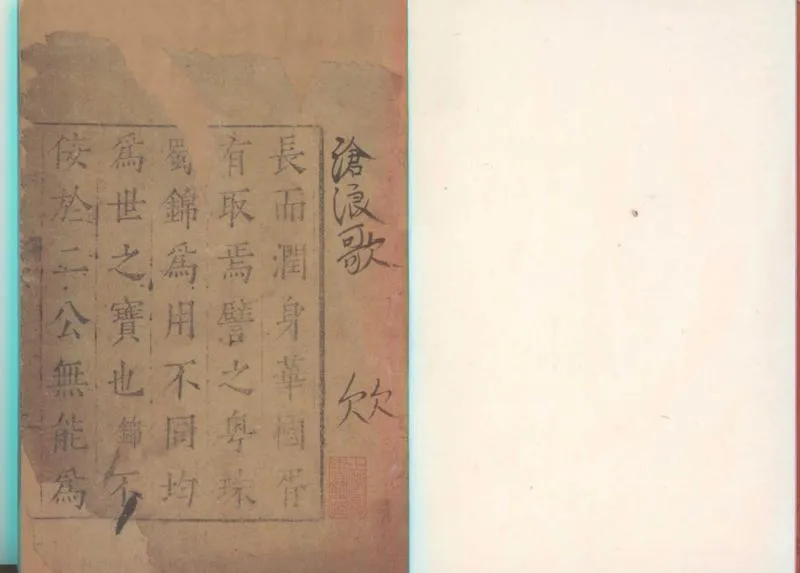 滄浪歌
長而潤身華國胥
有取焉譬之粤珠
蜀錦爲用不同均
爲世之寶也錦不
佞於二公無能爲